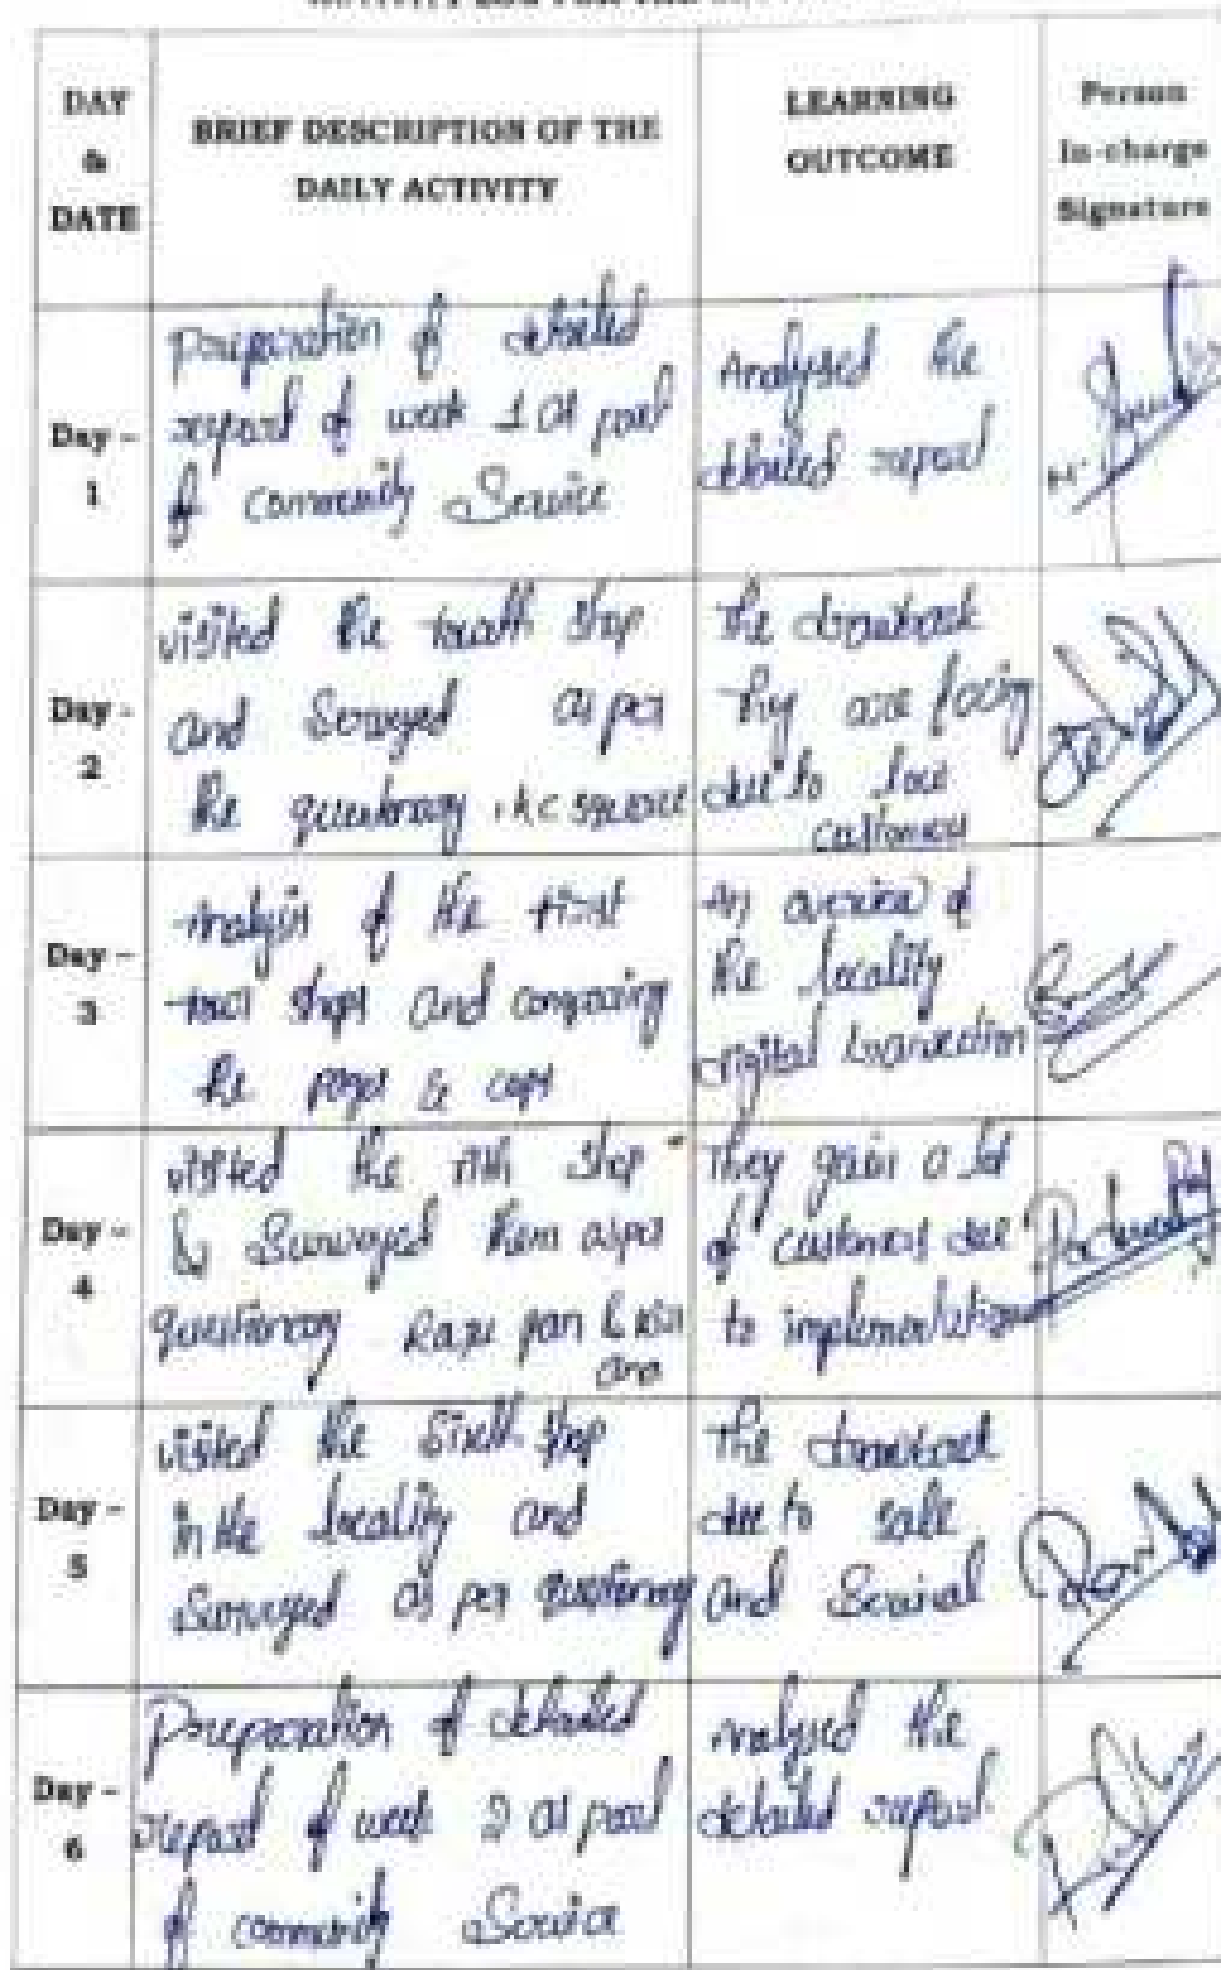 ACTIVITY LOG FOR THE
DAY
&
DATE
BRIEF DESCRIPTION OF THE
DAILY ACTIVITY
LEARNING
OUTCOME
Person
In-charge
Signature
Day -
1
preparation of detailed
report of week 1 as part
of community Service
Analysed the
detailed report
Day -
2
visited the fourth shop
and Surveyed as per
the
the drawback
they are facing
due to low
customers
Day -
3
Analysis of the first
four shops and comparing
the & cons
An overview of
the locality
digital transaction
Day -
4
visited the fifth shop
& Surveyed them as per
questionary pan &
area
They gain a lot
of customers due
to implementation
Day -
5
visited the Sixth shop
in the locality and
Surveyed as per questionary
The drawback
due to
and
Day -
6
Preparation of detailed
report of week 2 as part
of community Service
Analysed the
detailed report